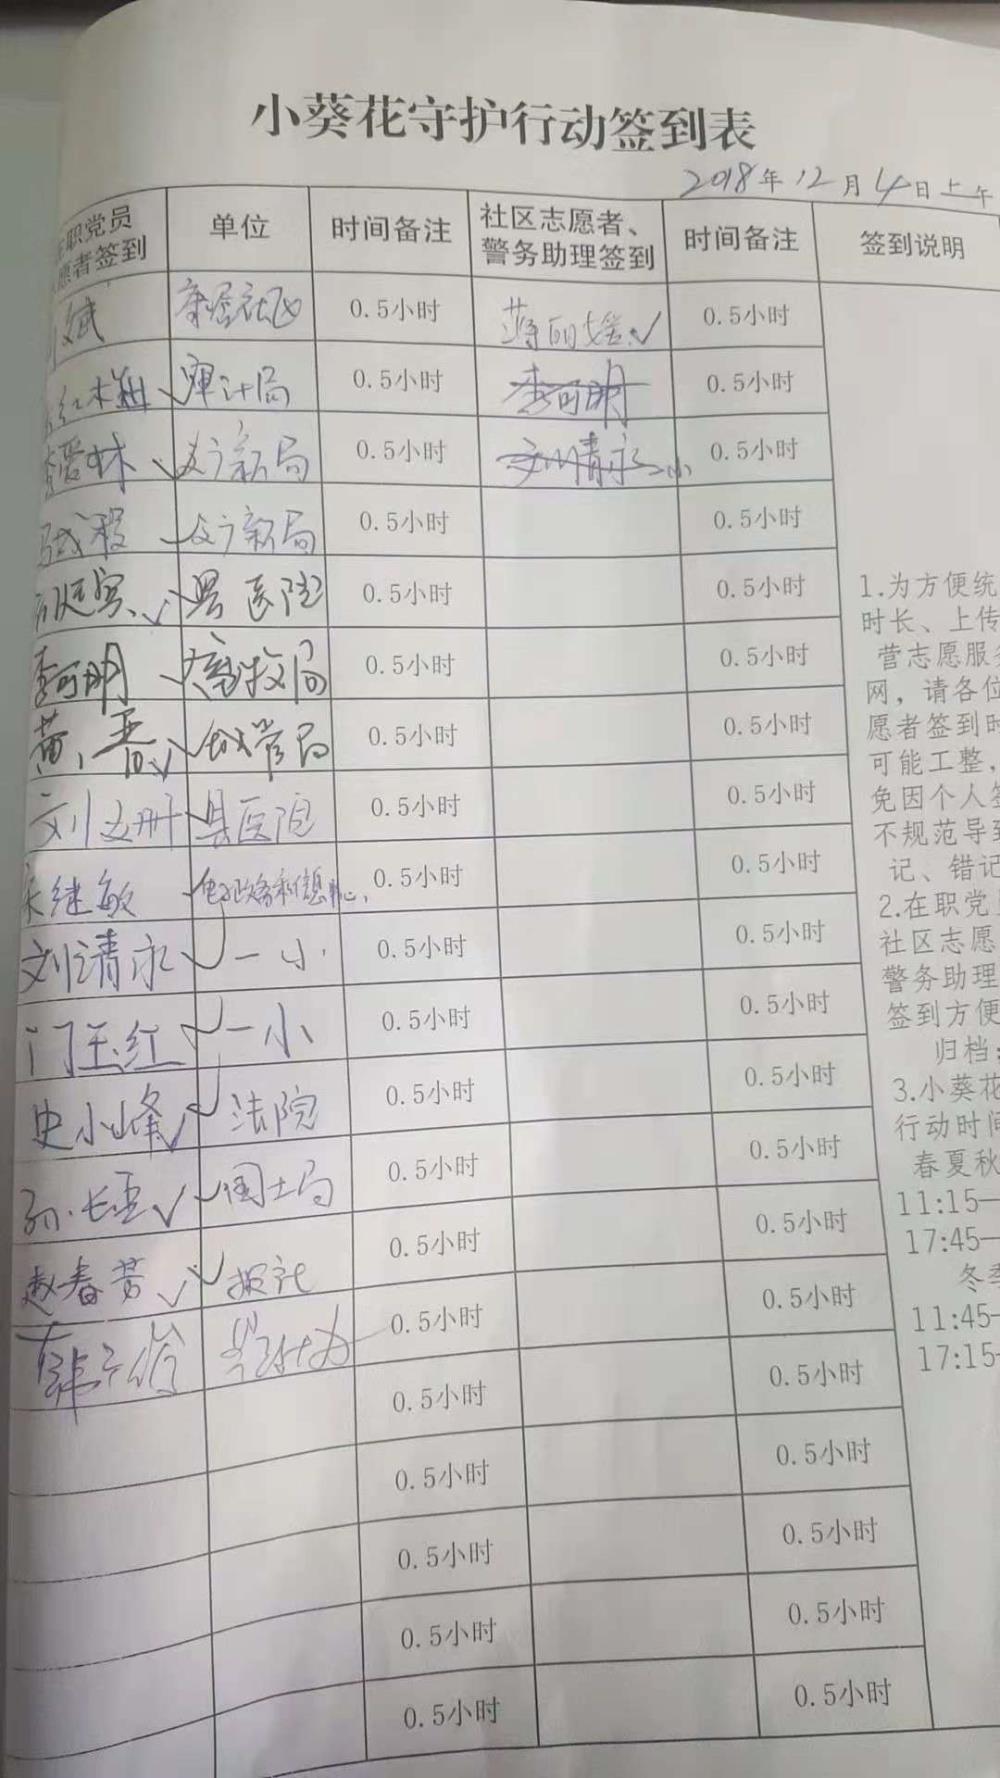 小葵花守护行动签到表
2018年12月4日上午
职党员 单位 时间备注 社区志愿者、 时间备注 签到说明
愿者签到 警务助理签到
斌 社区 0.5小时 0.5小时
红 审计局 0.5小时 李可明 0.5小时
林 文广新局 0.5小时 刘清永 一小 0.5小时
文广新局 0.5小时 0.5小时
县医院 0.5小时 0.5小时
李可明 畜牧局 0.5小时 0.5小时
黄 城管局 0.5小时 0.5小时
刘 县医院 0.5小时 0.5小时
继敏 电子政务和信息中心 0.5小时 0.5小时
刘清永 一小 0.5小时 0.5小时
门玉红 一小 0.5小时 0.5小时
史小峰 法院 0.5小时 0.5小时
孙长 国土局 0.5小时 0.5小时
赵春芳 报社 0.5小时 0.5小时
0.5小时 0.5小时
0.5小时 0.5小时
0.5小时 0.5小时
0.5小时 0.5小时
0.5小时 0.5小时
0.5小时 0.5小时
1.为方便统
时长、上传
营志愿服务
网，请各位
愿者签到时
可能工整，
免因个人签
不规范导致
记、错记
2.在职党员
社区志愿
警务助理
签到方便
归档；
3.小葵花
行动时间
春夏秋
11:15—
17:45—
冬季
11:45—
17:15—